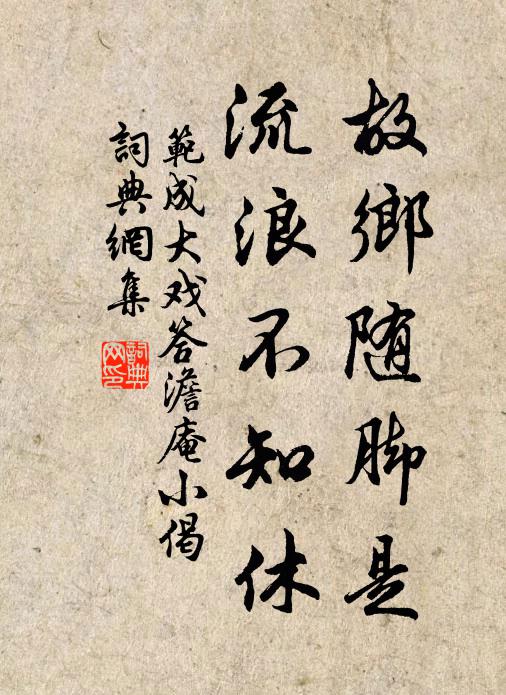 故鄉随脚是
流浪不知休
範成大戏答澹庵小偈
詞典網集
詞典网印